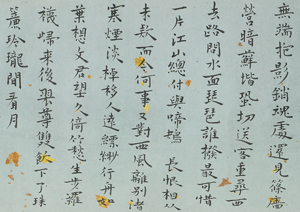 無端抱影銷魂處還見篠牆
螢暗蘚堦蛩切送客重尋西
去路問水面琵琶誰撥最可惜
一片江山總付與啼鴂 長恨相从
未款而今何事又對西風離別渚
寒煙淡棹移人遠縹緲行舟如
葉想文君望久倚竹愁生步羅
襪歸來後翠尊雙飲下了珠
簾玲瓏閒看月